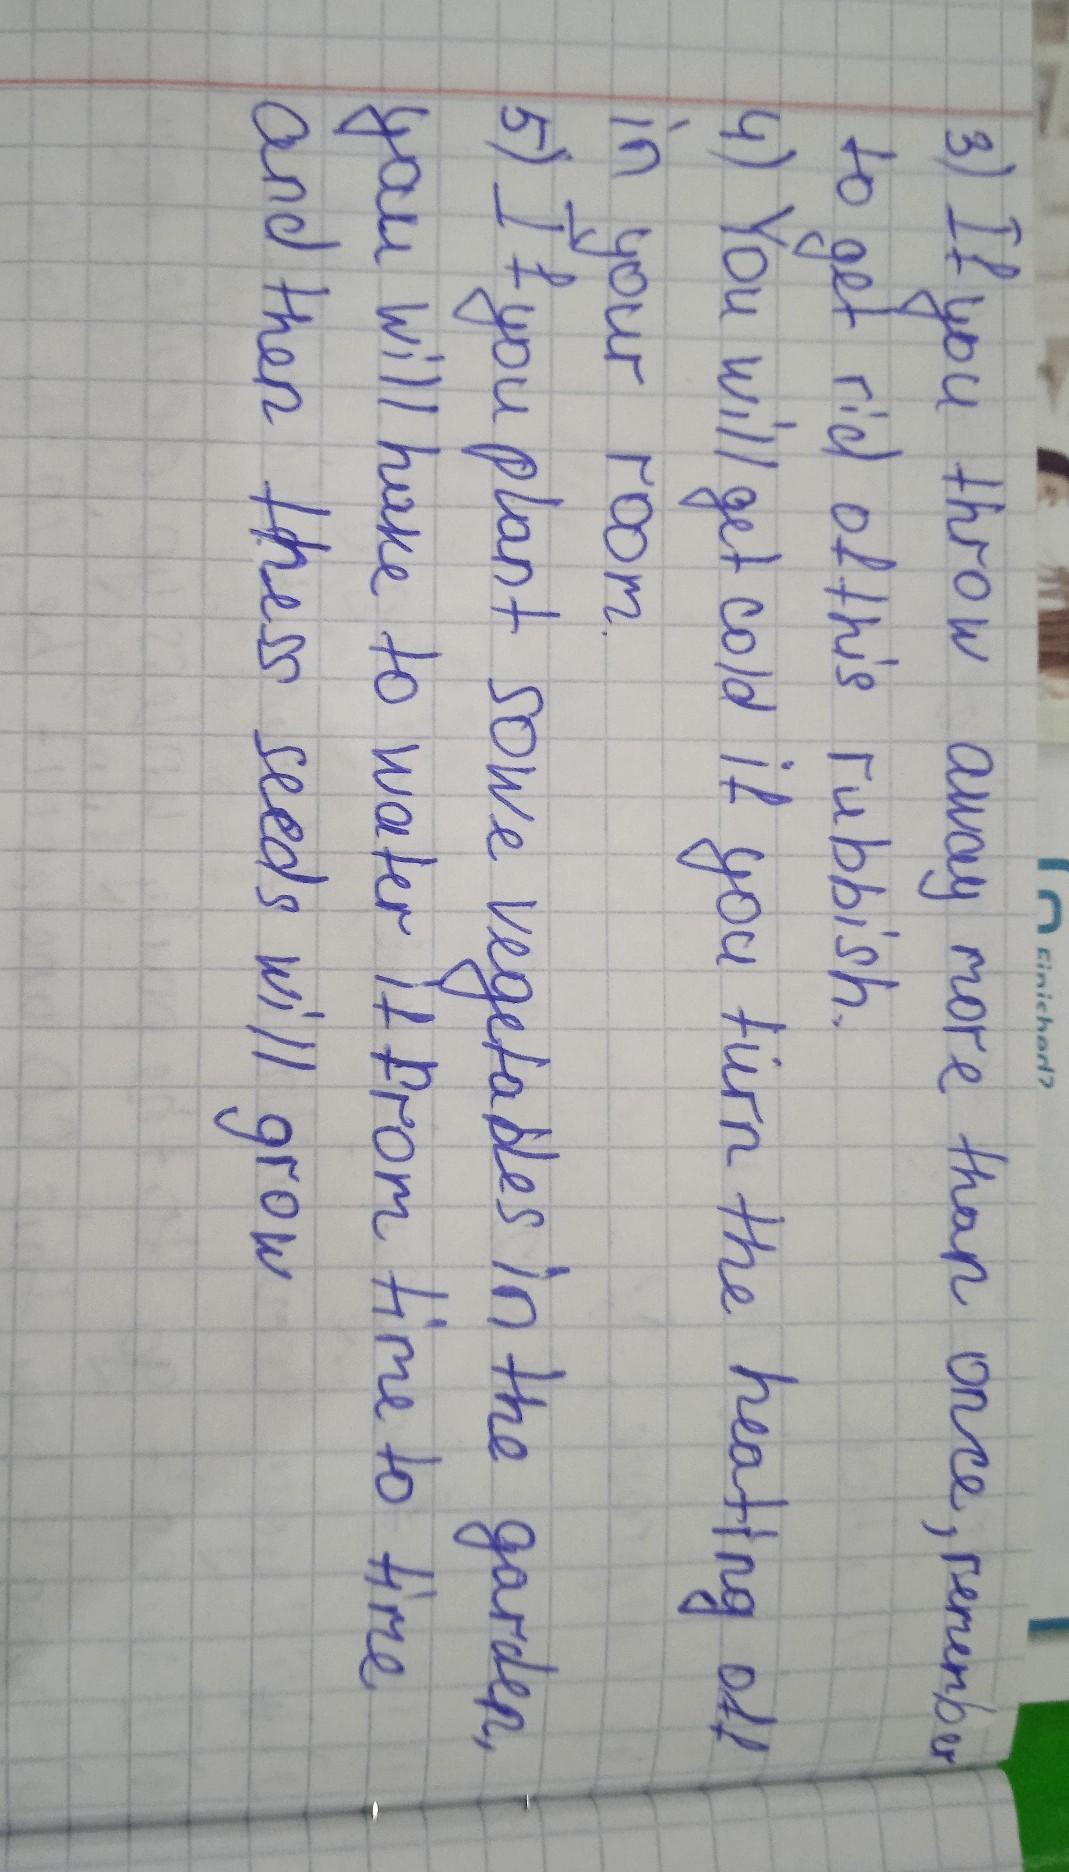 3) If you throw away more than once, remember
to get rid of this rubbish.
4) You will get cold if you turn the heating off
in your room.
5) If you plant some vegetables in the garden,
you will have to water it from time to time
and then these seeds will grow
finished?